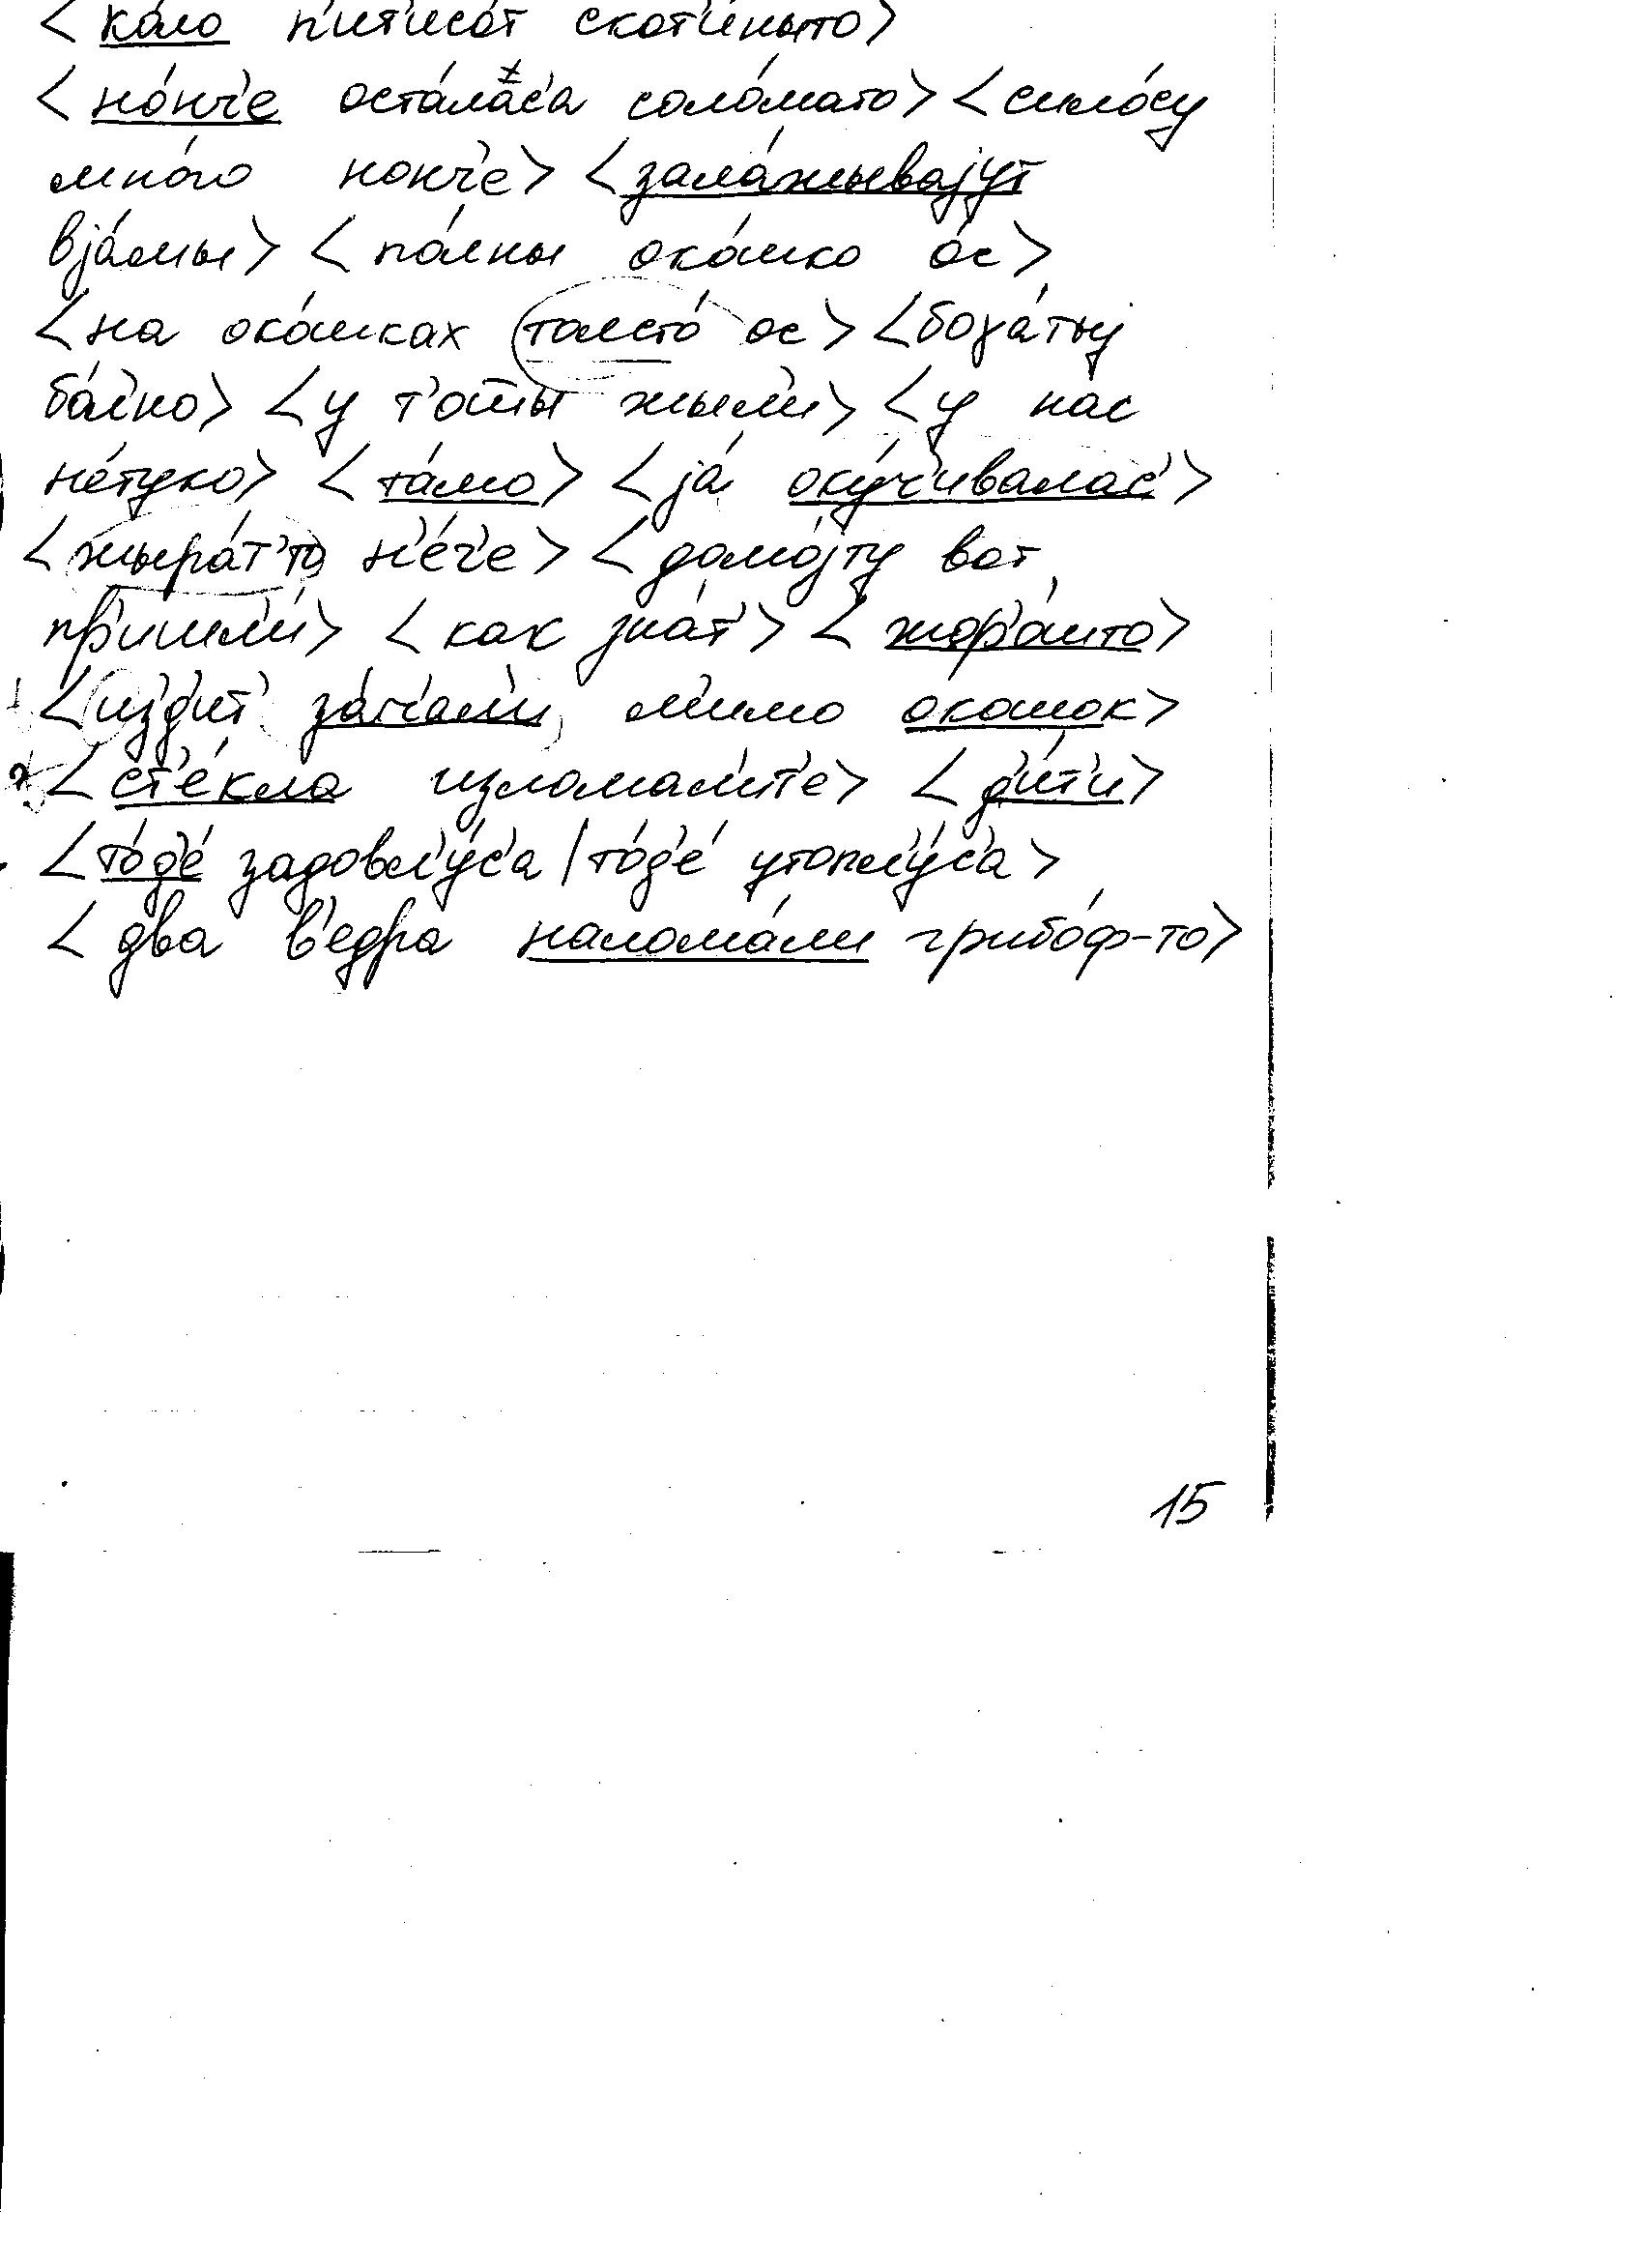 <ка́ло п'ит'исо́т скот'и́ныто>
<но́нч'е оста́лас'а соло́мато> <с'ило́су
мно́го нонч'е> <зала́жывајут
вја́мы> <по́лны око́шко о́с>
<на око́шках толсто́ ос> <бога́тыј
бо́л'но> <у т'о́ты жы́л'и> <у на́с
не́туко> <та́мо> <ја́ оку́ч'ивалас'>
<жыра́т'то н'е́ч'е> <домо́јту вот
пр'ишл'и́> <как зна́т'> <жор'о́што>
<из'д'ит' за́ч'ал'и, м'имо окошок>
<ст'е́кла изломал'ит'е> <д'и́т'и>
<то́д'е́ задовл'у́с'а / то́д'е́ утопл'у́с'а>
<два в'едра налома́ли грибо́ф-то>
15